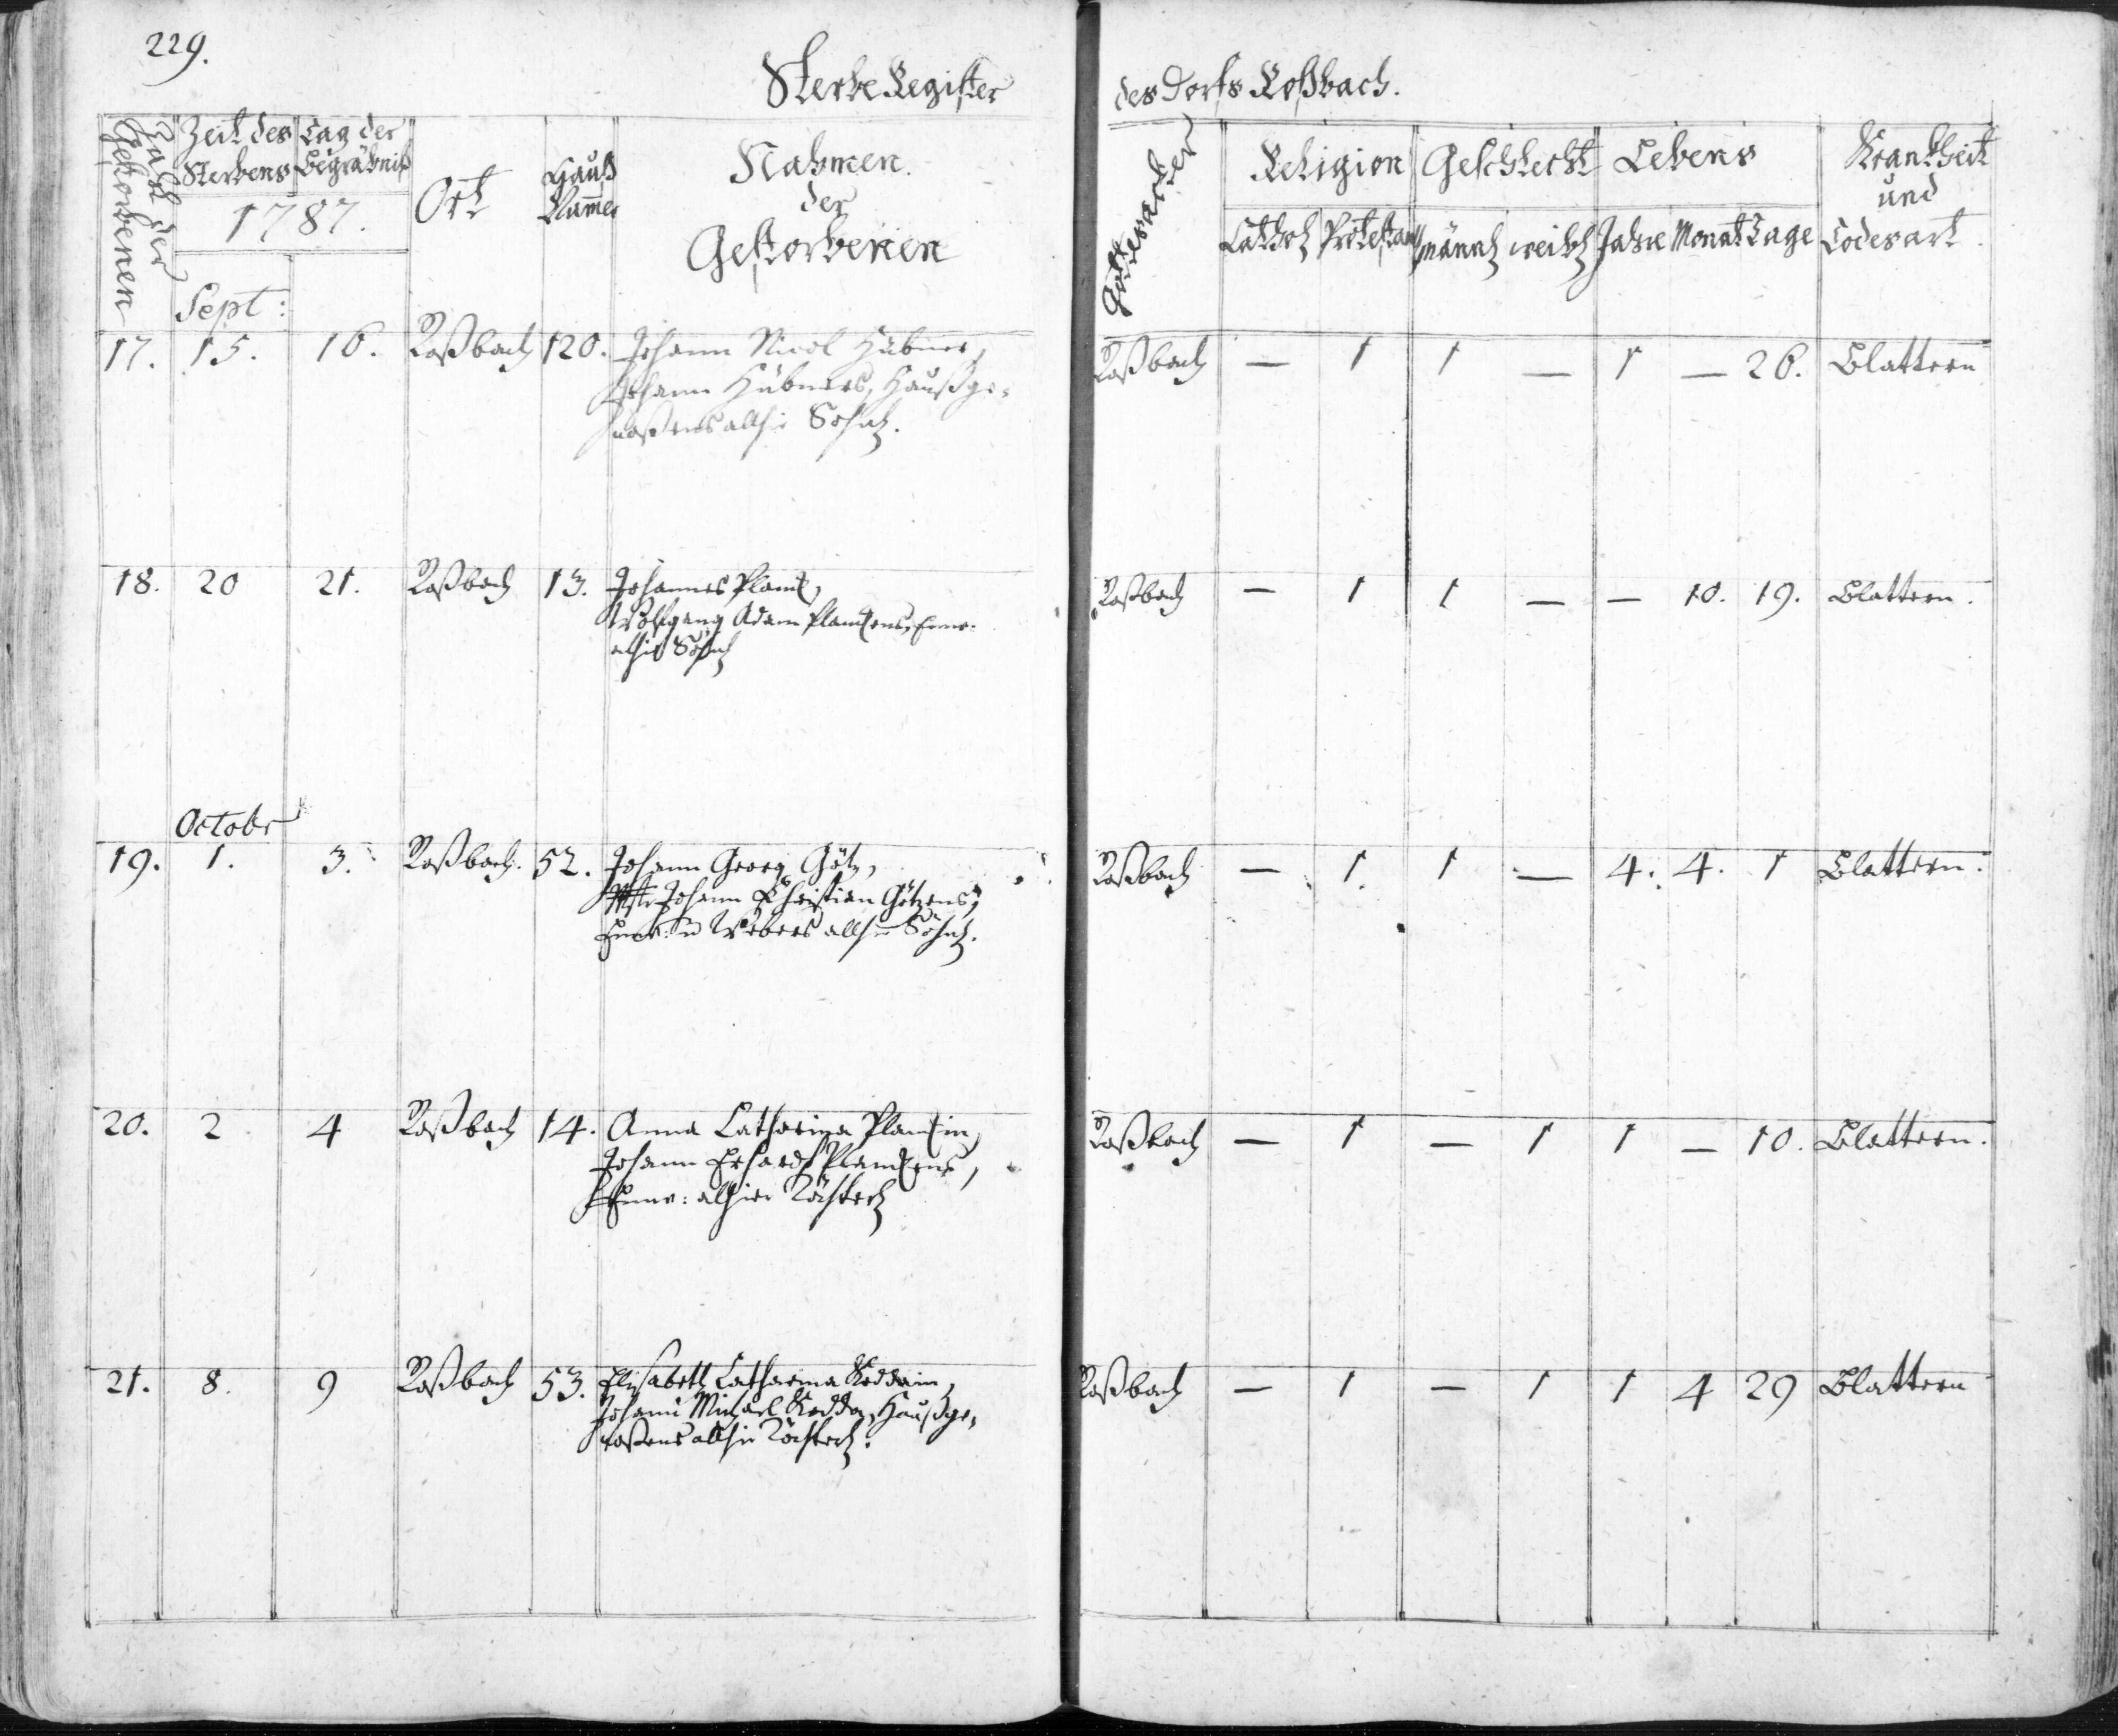 229.
Sterbe Register
des Dorfs Roßbach.
Zahl der Gestorbenen
Zeit des Sterbens
Tag der Begräbniß
1787.
Ort
Hauß Num̄er
Nahmen
der
Gestorbenen
Gottesacker
Religion
Cathol Protestan
Geschlecht
männl weibl
Lebens
Jahre Monat Tage
Kranckheit
und
Todesart.
Sept:
17. 15. 16. Roßbach 120. Johann Nicol Hübner,
Johann Hübners, Haußge-
noßens allhie Söhnl.
Roßbach — 1 1 — 1 — 26. Blattern
18. 20 21. Roßbach 13. Johannes
Wolfgang Adam
alhie Söhnl
Roßbach — 1 1 — — 10. 19. Blattern.
Octobr
19. 1. 3. Roßbach. 52. Johann Georg Götz,
Mstr Johann Christian Götzens,
u Webers allhie Söhnl.
Roßbach — 1. 1 — 4. 4. 1 Blattern.
20. 2 4 Roßbach 14. Anna Catharina
Johann Erhardt
alhier Töchterl
Roßbach — 1 — 1 1 — 10. Blattern.
21. 8. 9 Roßbach 53. Elisabeth Catharina
Johann Michael Haußge-
noßens allhie Töchterl.
Roßbach — 1 — 1 1 4 29 Blattern